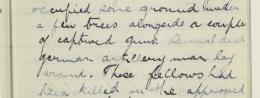 occupied some ground under
a few trees alongside a couple
of captured guns. Several dead
german artillery men lay
around. These fellows had
been killed in the approved